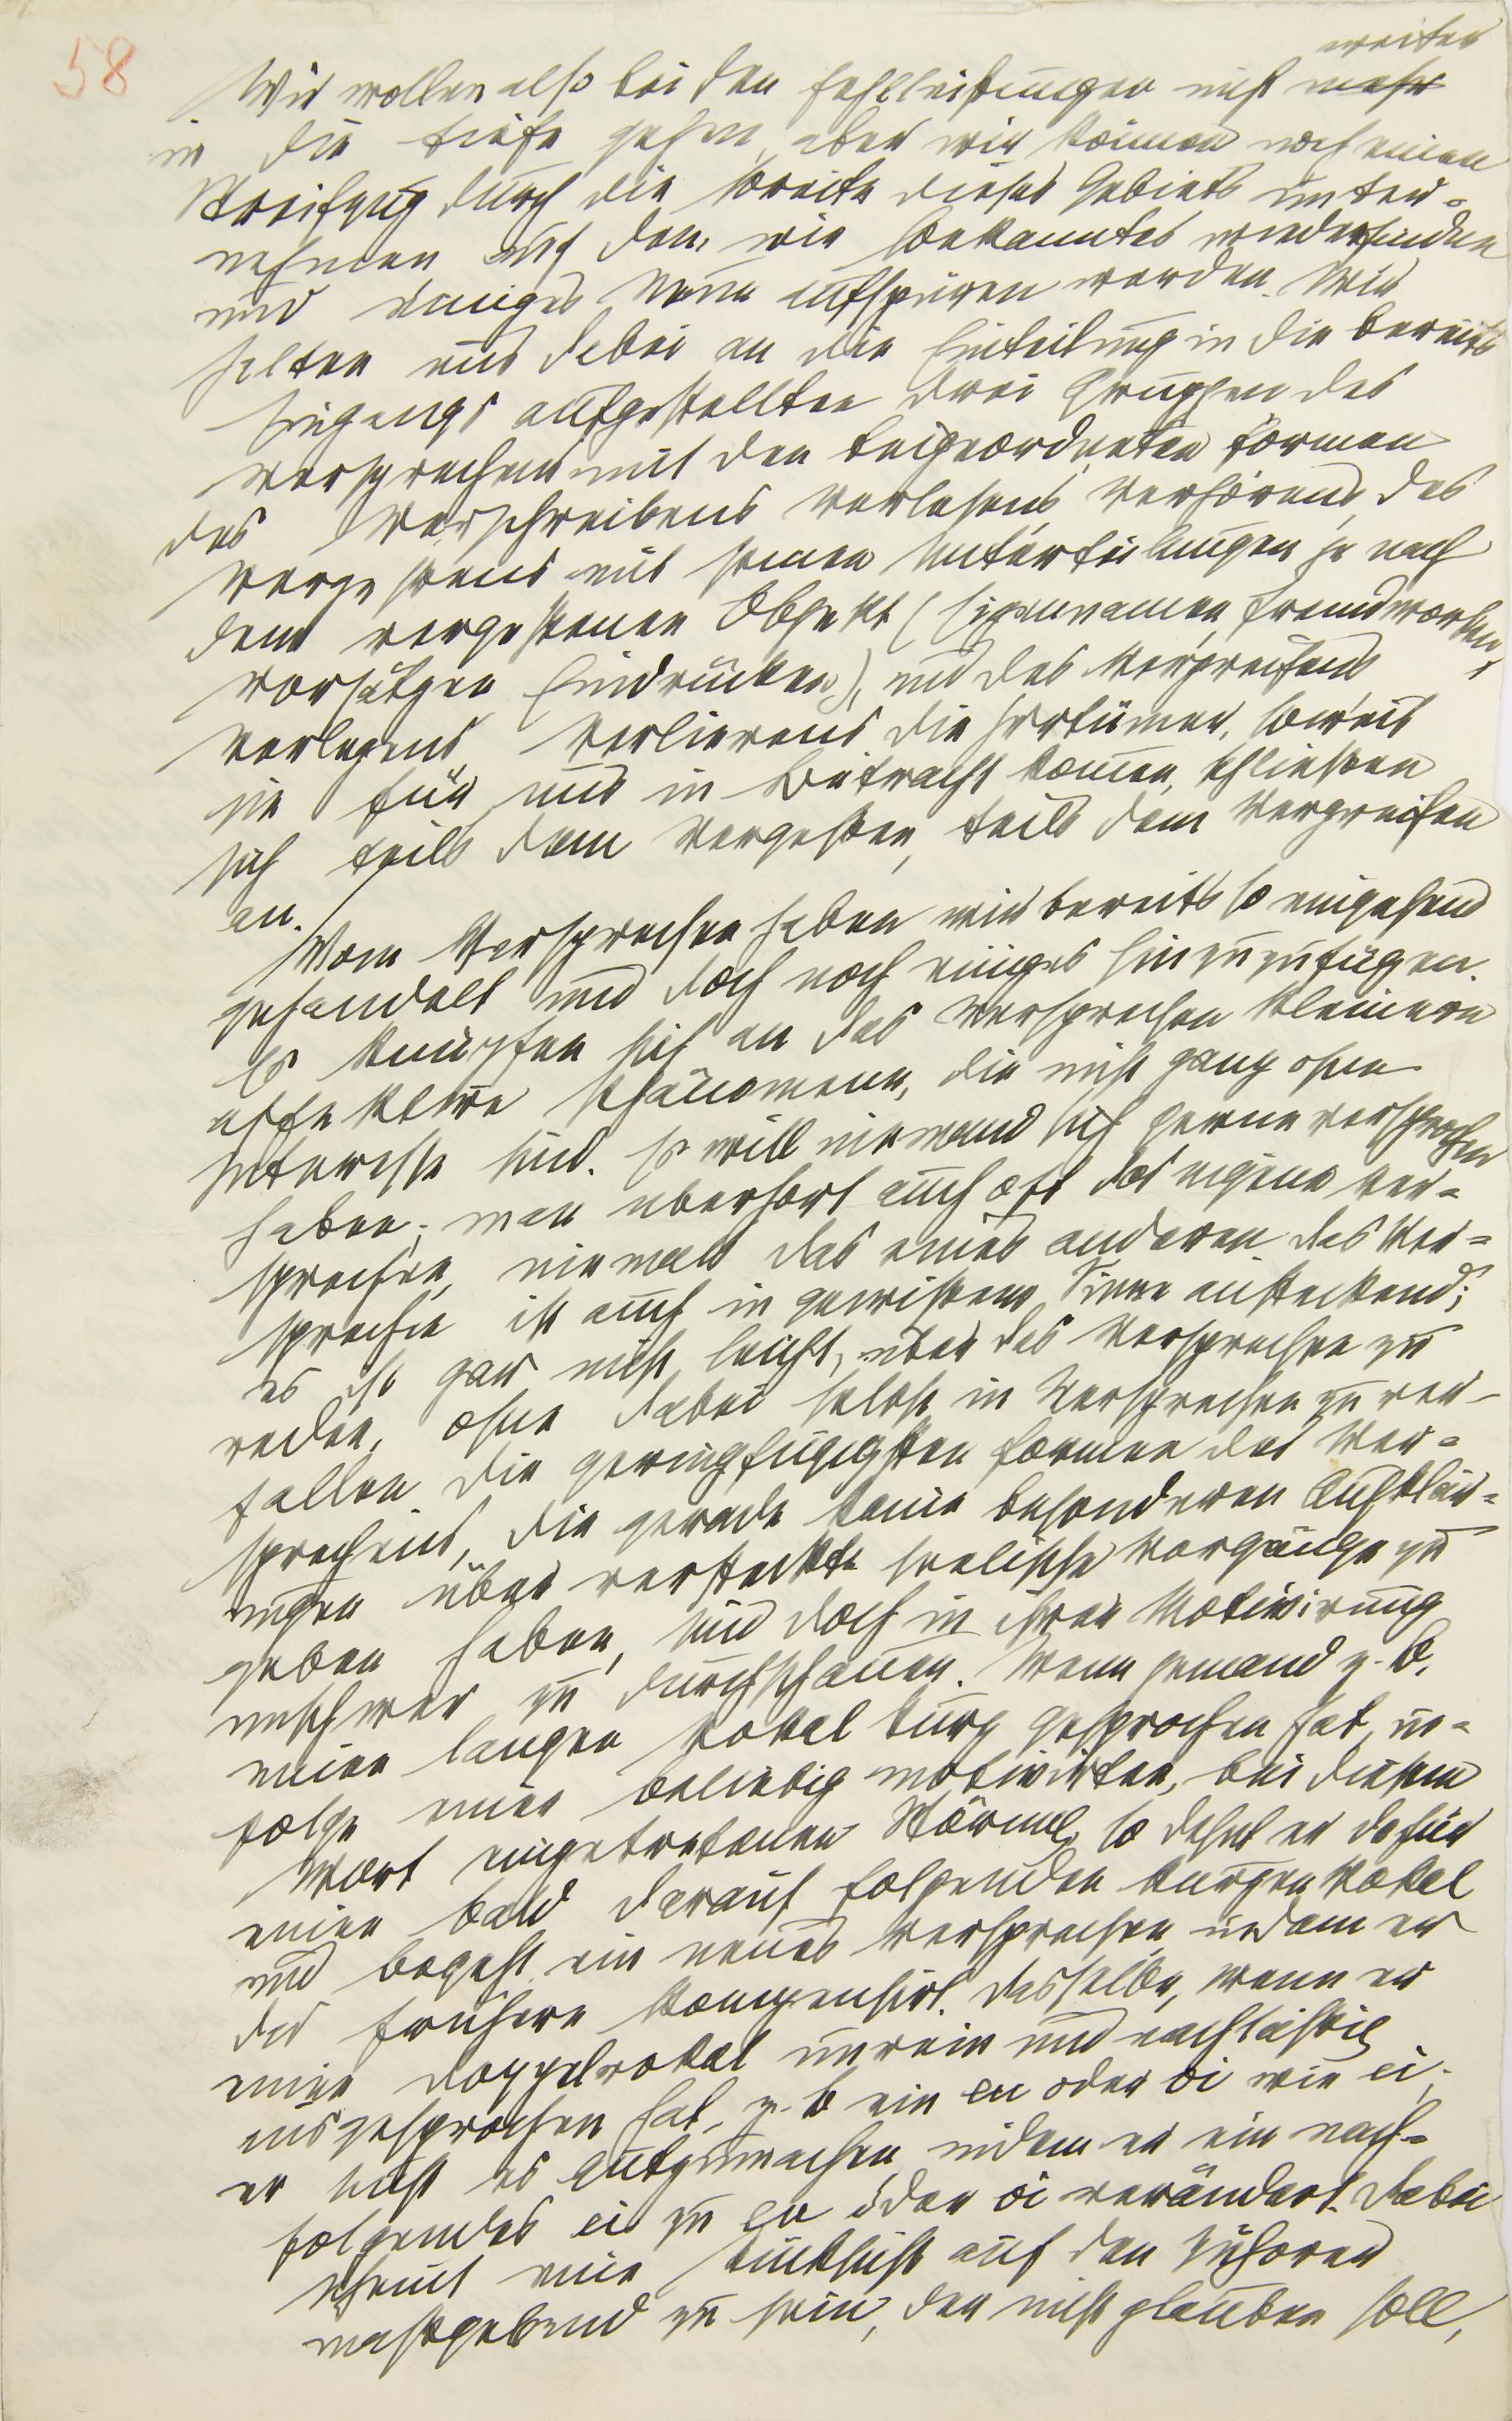 58
weiter
Wir wollen also bei den Fehlleistungen nicht mehr
in die Tiefe gehen, aber wir können noch einen
Streifzug durch die Breite dieses Gebiets unter-
nehmen auf dem wir Bekanntes wiederfinden
und einiges Neue aufspüren werden. Wir
halten uns dabei an die Einteilung in die bereits
Eingangs aufgestellten drei Gruppen des
Versprechens mit den beigeordneten Formen
des Verschreibens Verlesens, Verhörens, des
Vergessens mit seinen Unterteilungen je nach
dem vergessenen Objekt (Eigennamen, Fremdworten,
Vorsätzen Eindrücken), und des Vergreifens
Verlegens, Verlierens. Die Irrtümer, soweit
sie für uns in Betracht kommen, schließen
sich teils dem Vergessen, teils dem Vergreifen
an.
Vom Versprechen haben wir bereits so eingehend
gehandelt und doch noch einiges hinzuzufügen.
Es knüpfen sich an das Versprechen kleinere
affektive Phänomene, die nicht ganz ohne
Interesse sind. Es will niemand sich gerne versprochen
haben; man überhört auch oft das eigene Ver-
sprechen, niemals das eines anderen. Das Ver-
sprechen ist auch in gewissem Sinne ansteckend;
es ist gar nicht leicht, über das Versprechen zu
reden, ohne dabei selbst in Versprechen zu ver-
fallen. Die geringfügigsten Formen des Ver-
sprechens, die gerade keine besonderen Aufklär-
ungen über versteckte seelische Vorgänge zu
geben haben, sind doch in ihrer Motivirung
unschwer zu durchschauen. Wenn jemand z. B.
einen langen Vokal kurz gesprochen hat, in-
folge einer beliebig motivirten, bei diesem
Wort eingetretenen Störung, so dehnt er dafür
einen bald darauf folgenden kurzen Vokal
und begeht ein neues Versprechen, indem er
das frühere kompensirt. Dasselbe, wenn er
einen Doppelvokal unrein und nachlässig
ausgesprochen hat, z. B ein eu oder oi wie ei;
er sucht es gutzumachen, indem er ein nach-
folgendes ei zu eu oder oi verändert. Dabei
scheint eine Rücksicht auf den Zuhörer
maßgebend zu sein, der nicht glauben soll,